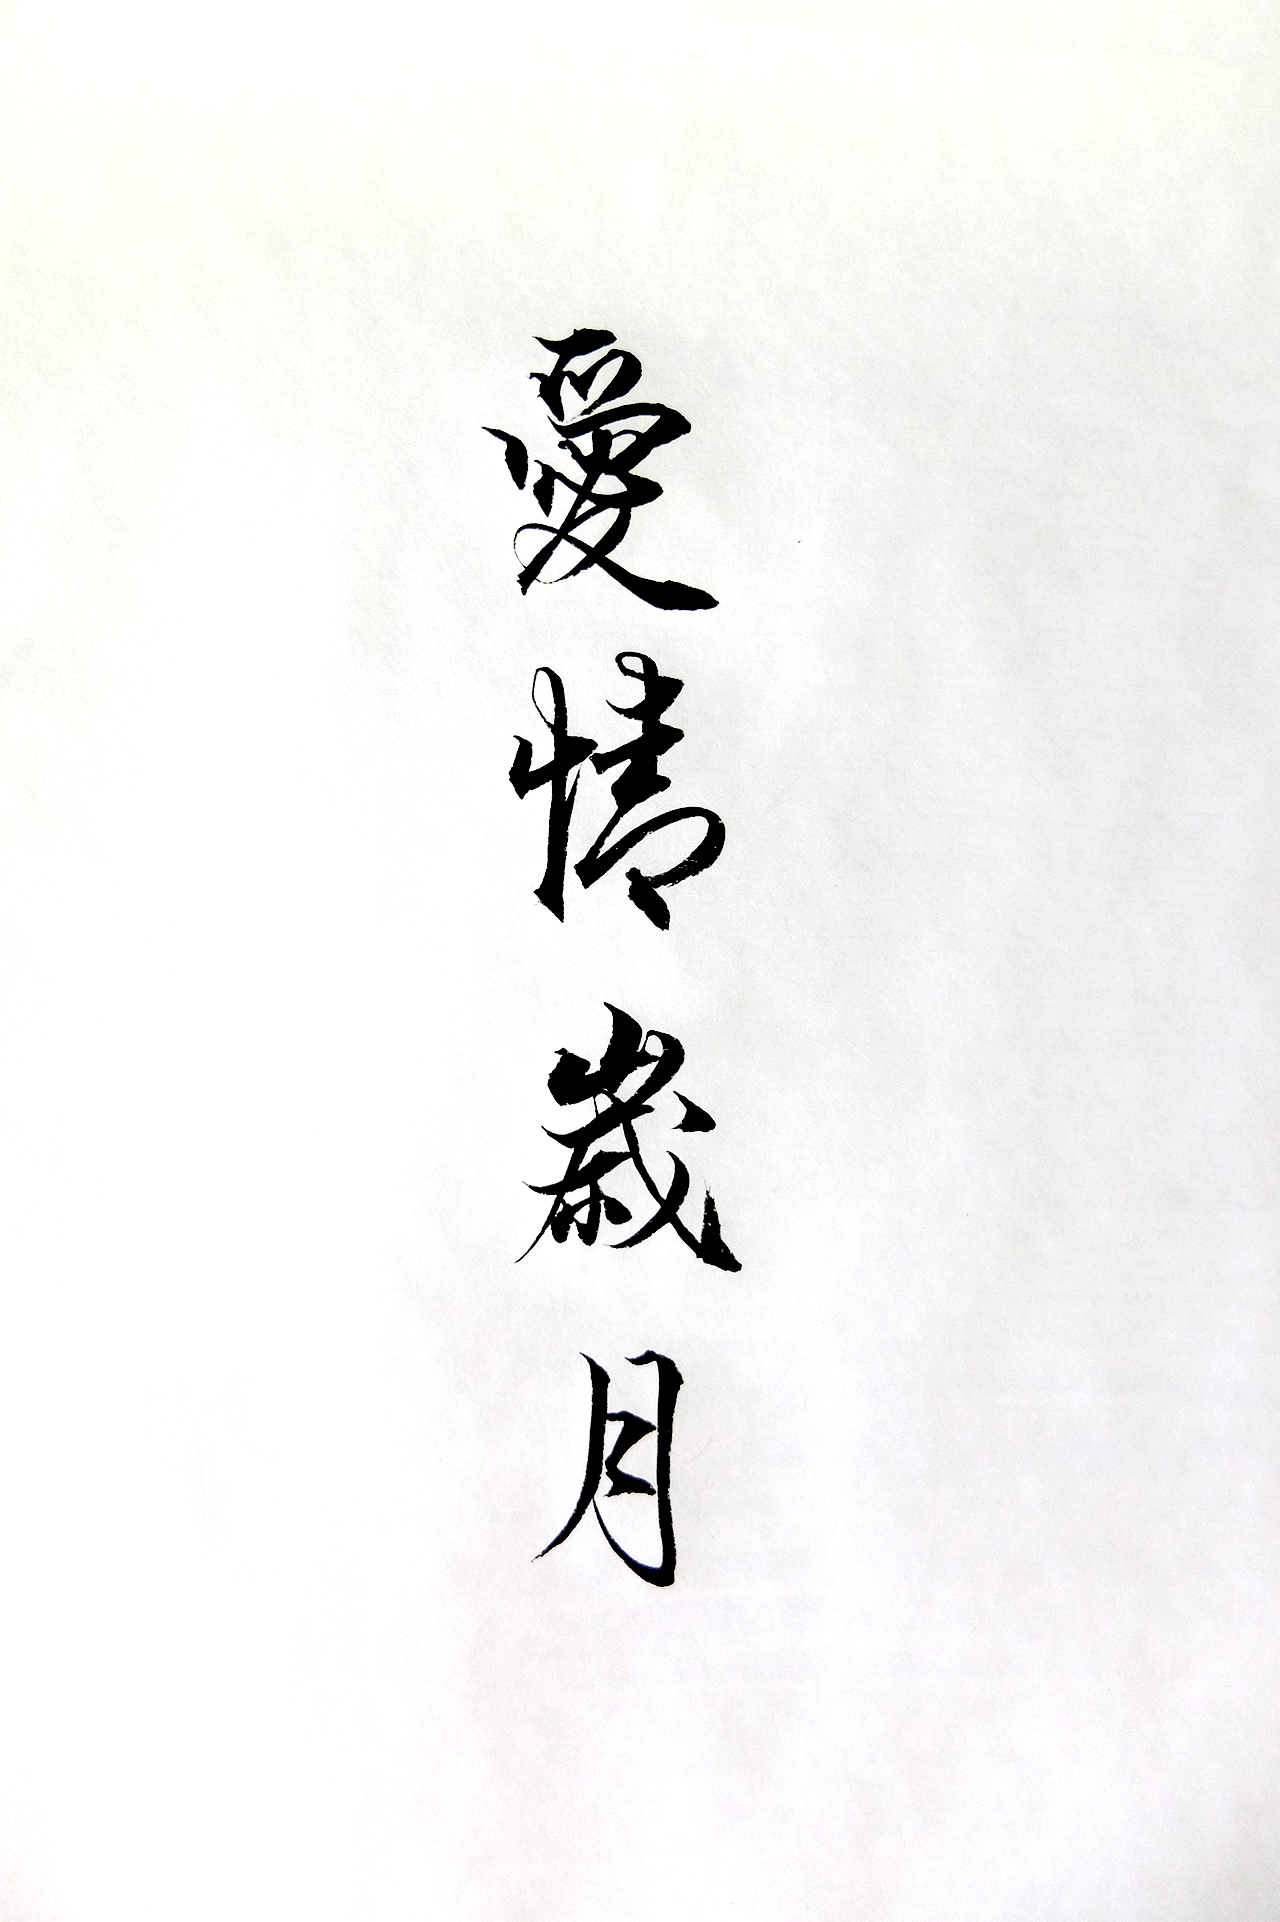 愛情歲月